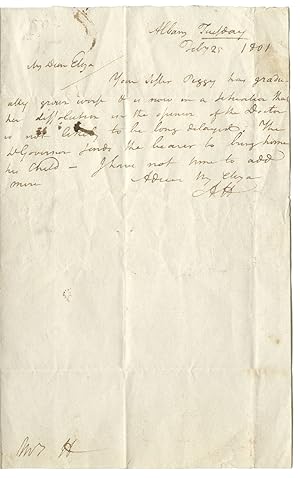 Albany Tuesday
Feby 25 1801
My Dear Eliza
Your Sister Peggy has gradu-
ally grown worse & is now in a situation that
her dissolution in the opinion of the Doctor
is not likely to be long delayed. The
Lt Governor sends the bearer to bring home
his Child — I have not time to add
more
Adieu My Eliza
AH
Mrs H